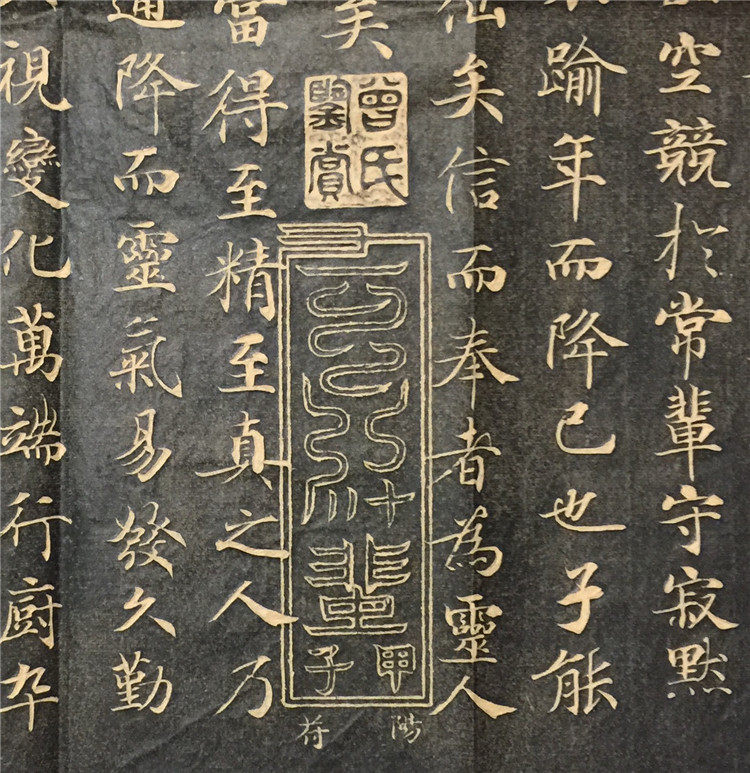 空競於常輩守寂默
踰年而降己也子能
仙矣信而奉者為靈人
矣
曾氏鑒賞
甲子
陽符
當得至精至真之人乃
通降而靈氣易發久勤
視變化萬端行廚卒